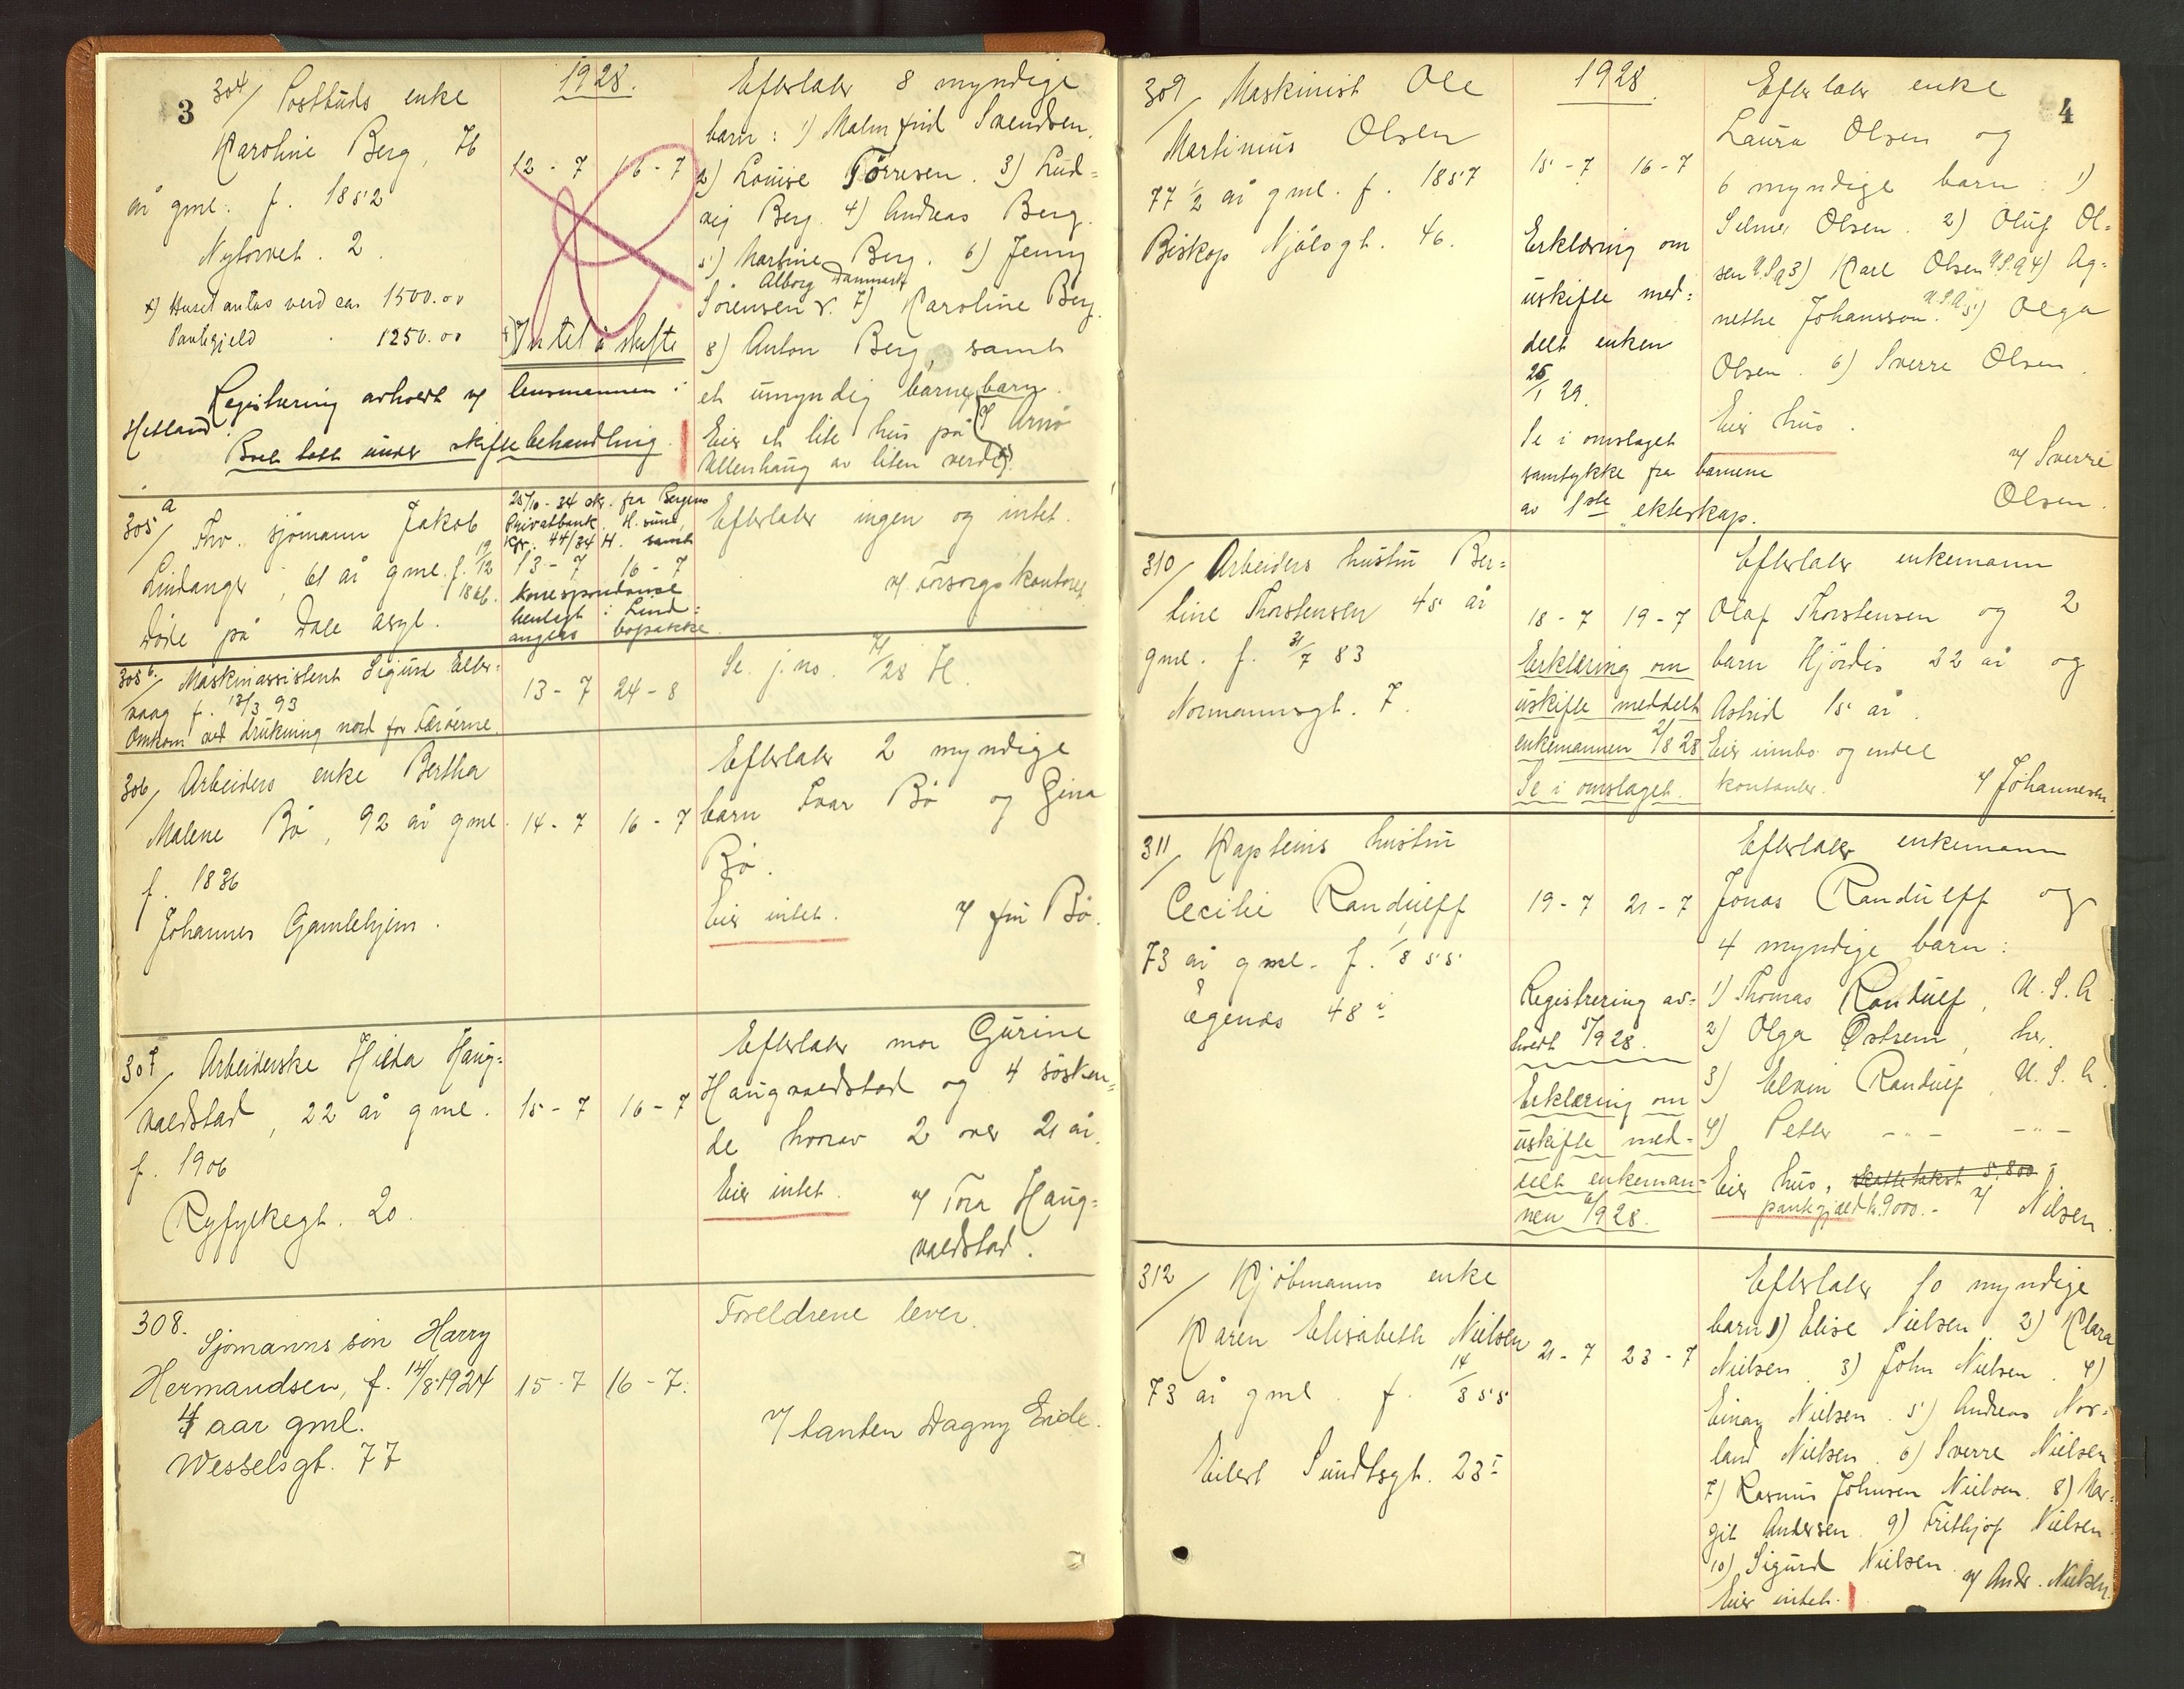 3
304/ Postbuds enke
Karoline Berg, 76
år gml. f. 1852
Nytorvet. 2.
x) Huset antas verd ca. 1500.00
Pantegjeld 1250.00
1928.
12 - 7 16 - 7
x) Intet å skifte
Registrering avholdt v/ lensmannen i
Hetland.
Boet tatt under skiftebehandling.
Efterlater 8 myndige
barn: 1) Malmfrid Svendsen.
2) Louise Tørresen. 3) Lud=
vig Berg. 4) Andreas Berg.
5) Martine Berg. 6) Jenny
Alborg Danmark
Sørensen v. 7) Karoline Berg.
8) Anton Berg, samt
et umyndig barnebarn.
Eier et lite hus på
Ullenhaug av liten verdi x).
305a/ Fhv. sjømann Jakob
Lindanger, 61 år gml. f. 19/12
1866.
Døde på Dale asyl.
25/10-34 skr. fra Bergens
Privatbank, H.sund,
Kfr. 44/34 H. samt
13 - 7 16 - 7
korrespondanse
henlagt i Lind=
angers bopakke.
Efterlater ingen og intet.
v/ Forsorgskontoret
305b/ Maskinassistent Sigurd Elter=
vaag f. 13/3 93
Omkom ved drukning nord for Færøerne.
13 - 7 24 - 8
Se j.no. 71/28 H.
306/ Arbeiders enke Bertha
Malene Bø, 92 år gml.
f. 1836
Johannes Gamlehjem.
14 - 7 16 - 7
Efterlater 2 myndige
barn Ivar Bø og Gina
Bø.
Eier intet. v/ fru Bø.
307/ Arbeiderske Hilda Haug=
valdstad, 22 år gml.
f. 1906
Ryfylkegt. 20.
15 - 7 16 - 7
Efterlater mor Gurine
Haugvaldstad og 4 søsken=
de hvorav 2 over 21 år.
Eier intet. v/ Tora Haug=
valdstad.
308.
Sjømanns søn Harry
Hermandsen, f. 14/8-1924
4 aar gml.
Wesselsgt. 77
15 - 7 16 - 7.
Foreldrene lever.
v/ tanten Dagny Eide.
4
309/ Maskinist Ole
Martinius Olsen
77 1/2 år gml. f. 1857
Biskop Njålsgt. 46.
1928.
15 - 7 16 - 7
Erklæring om
uskifte med=
delt enken
25/1 29.
Se i omslaget
samtykke fra barnene
av 1ste ekteskap.
Efterlater enke
Laura Olsen og
6 myndige barn: 1)
Selmer Olsen. 2) Oluf Ol=
sen U.S.A 3) Karl Olsen U.S.A 4) Ag=
nethe Johansson. U.S.A. 5) Olga
Olsen. 6) Sverre Olsen.
Eier hus.
v/ Sverre
Olsen.
310/ Arbeiders hustru Ber=
tine Thorstensen 45 år
gml. f. 31/7 83
Normannsgt. 7.
18 - 7 19 - 7
Erklæring om
uskifte meddelt
enkemannen 2/8 28
Se i omslaget.
Efterlater enkemann
Olaf Thorstensen og 2
barn Hjørdis 22 år og
Astrid 15 år.
Eier innbo og endel
kontanter. v/ Johannesen.
311/ Kapteins hustru
Cecilie Randulff
73 år gml. f. 1/8 55.
Øgends 48 I
19 - 7 21 - 7
Registrering av=
holdt 5/9 28.
Erklæring om
uskifte med=
delt enkeman=
nen 6/9 28.
Efterlater enkemann
Jonas Randulff og
4 myndige barn:
1) Thomas Randulf, U.S.A
2) Olga Østrem, her.
3) Elvin Randulf, U.S.A.
4) Petter -"- -"-
Eier hus, skattetakst 5.800
pantegjeld k. 9000.- v/ Nilsen.
312/ Kjøbmanns enke
Karen Elisabeth Nielsen
73 år gml. f. 14/3 55
Eilert Sundtsgt. 23 I
21 - 7 23 - 7
Efterlater 10 myndige
barn 1) Elise Nielsen. 2) Klara
Nielsen. 3) John Nielsen. 4)
Einar Nielsen. 5) Andreas Nor=
land Nielsen. 6) Sverre Nielsen
7) Rasmus Johnsen Nielsen. 8) Mar=
git Andersen. 9) Frithjof Nielsen
10) Sigurd Nielsen.
Eier intet. v/ Andr. Nielsen.